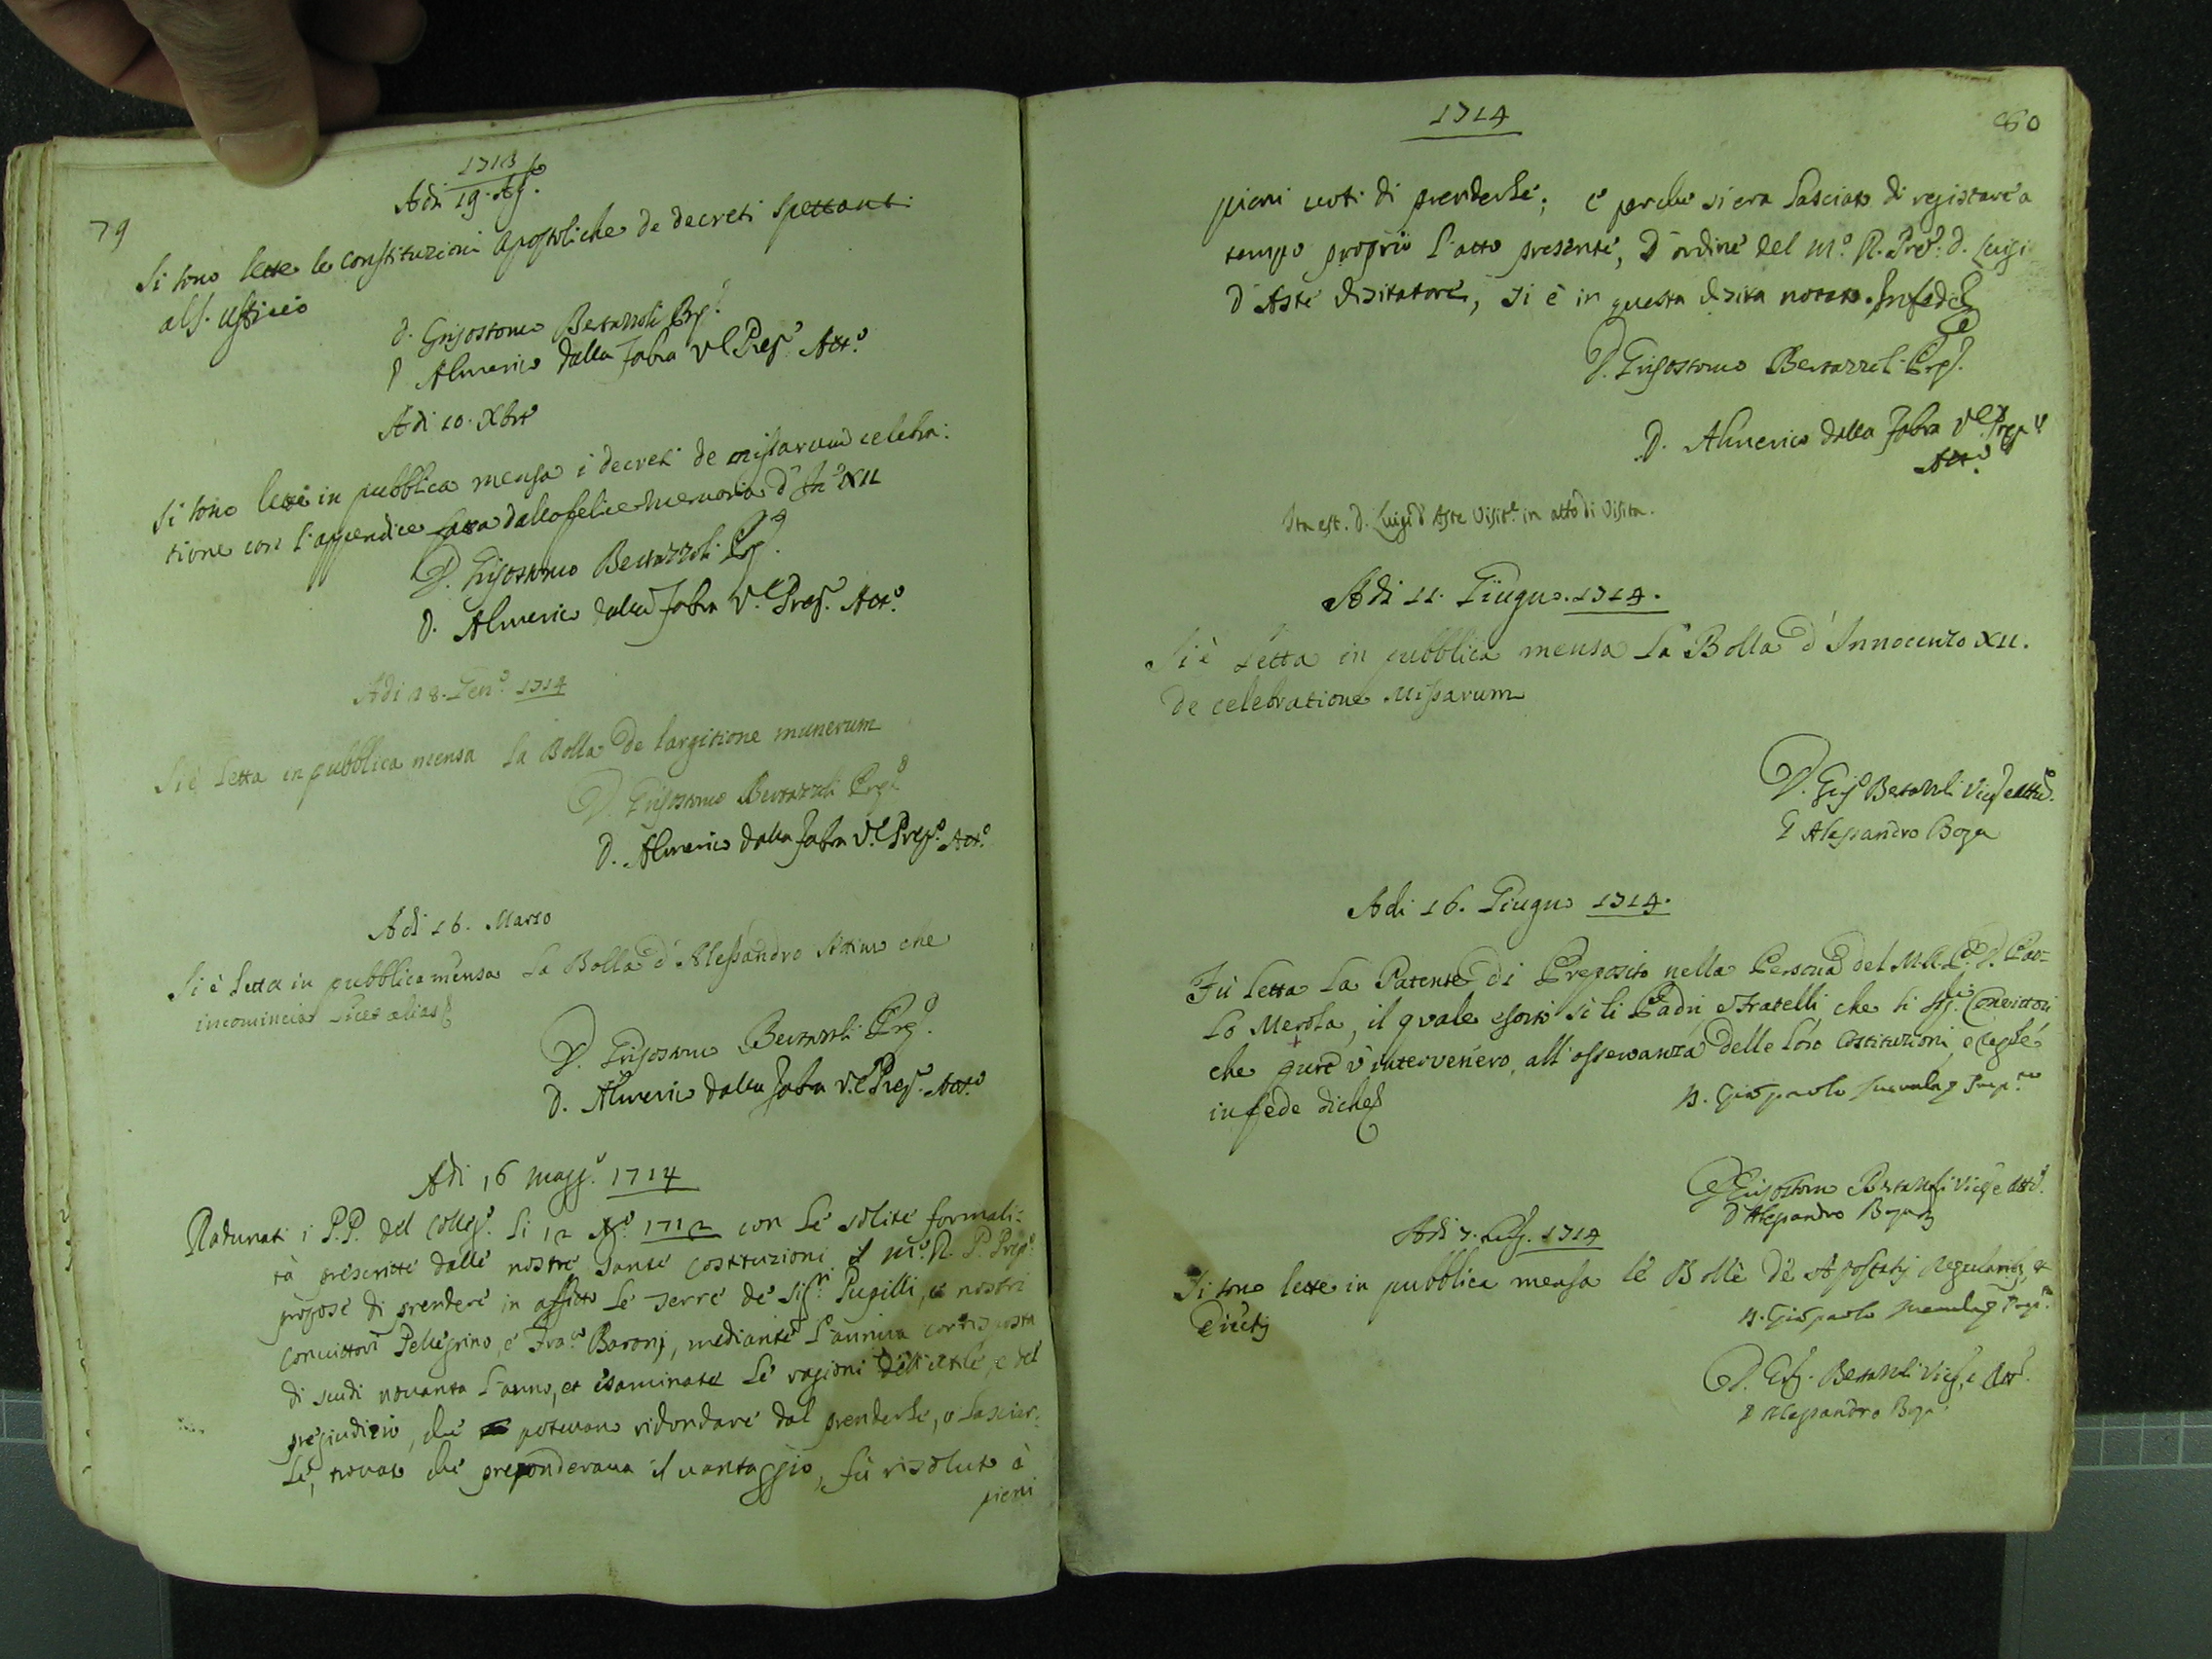 79
1713
Adi 19. Ag.to
Si sono lette le constituzioni Apostoliche de decreti spettant:
al S. Officio
D. Grisostomo Bertazzoli Prep.
D. Almerico dalla Fabra V. Prep.o Att.o
Adi 10. Xbre
Si sono letti in pubblica mensa i decreti de missarum celebra:
tione con l'appendice fatta dalla felice memoria d'In.o XII
D. Grisostomo Bertazzoli Prep.o
D. Almerico dalla Fabra V. Prep.o Att.o
Adi 18. Gen.o 1714
Si è letta in pubblica mensa la Bolla de largitione munerum
D. Grisostomo Bertazzoli Prep.o
D. Almerico dalla Fabra V. Prep.o Att.o
Adi 16. Marzo
Si è letta in pubblica mensa la Bolla d'Alessandro che
incomincia Licet alias
D. Grisostomo Bertazzoli Prep.o
D. Almerico dalla Fabra V. Prep.o Att.o
Adi 16 Magg.o 1714
Radunati i P.P. del Colleg.o li 12 1712 con le solite formali:
tà prescritte dalle nostre sante costituzioni il M.o R. P. Prep.o
propose di prendere in affitto le terre de Sig.ri Pugilli, e nostri
convittori Pellegrino, e Fra.co Baronj, mediante l'annua corrisposta
di scudi novanta l'anno, et esaminate le ragioni dell'utile, e del
pregiudizio, che potevano ridondare dal prenderle, o lasciar:
le, trovato che preponderava il vantaggio, fù risoluto à
pieni
1714
80
pieni voti di prenderle; e perche si era lasciato di registrare a
tempo proprio l'atto presente, d'ordine del M.o R. Pre. D. Luigi
d'Aste Visitatore, si è in questa visita notato. In fede
D. Grisostomo Bertazzoli Prep.
D. Almerico dalla Fabra V. Prep.o
Att.o
Ita est. D. Luigi d'Aste Visit.e in atto di Visita.
Adi 11. Giugno. 1714.
Si è letta in pubblica mensa la Bolla d'Innocenzo XII.
de celebratione Missarum
D. Gris. Bertazzoli Vicep. e att.o
D Alessandro Boza
Adi 16. Giugno 1714.
Fù letta la Patente di Preposito nella Persona del M.R.P. D. Pao=
lo Merola, il quale esortò sì li Padri e Fratelli che li Convittori
che pure v'intervenero, all'osservanza delle loro Costituzioni, e regole
in fede di che
D. Gio: Paolo Prep.to
D Grisostomo Bertazzoli Vicep. e att.o
D Alessandro Boza
Adi 7. Lug. 1714
Si sono lette in pubblica mensa le Bolle de Apostatis Regularibus, et
Eiectis
D. Gio: Paolo Prep.to
D. Gris. Bertazzoli Vicep. e Att.
D Alessandro Boza